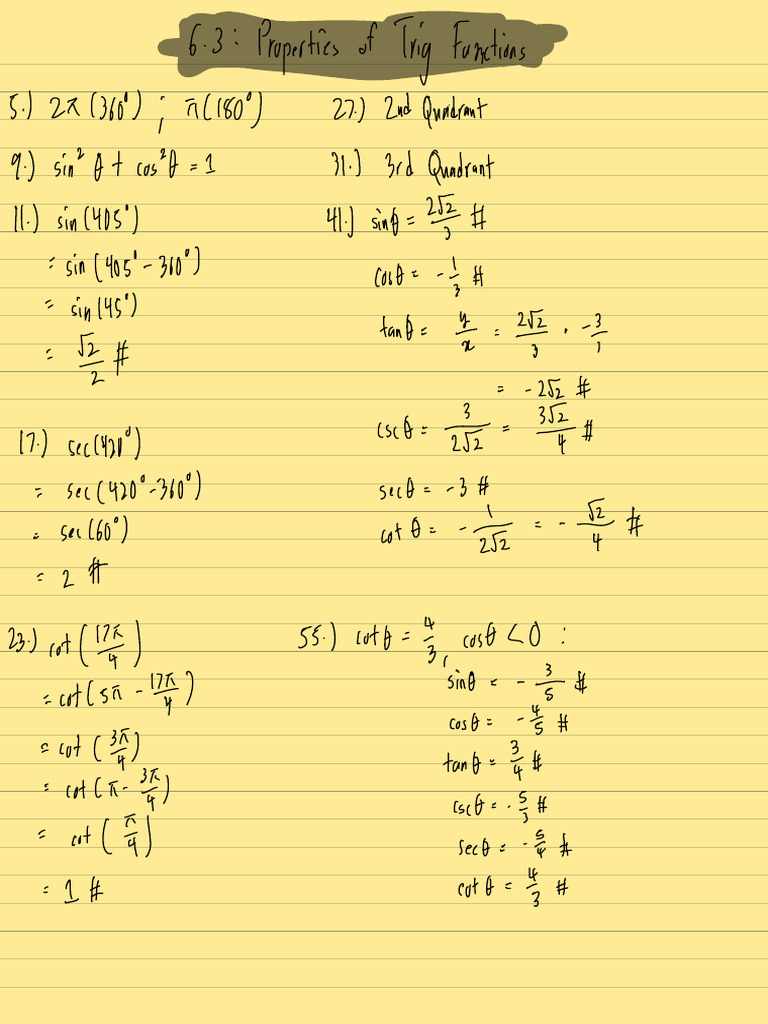 6.3: Properties of Trig Functions
5.) 2π (360°) ; π(180°)
9.) sin² θ + cos² θ = 1
11.) sin(405°)
= sin(405° - 360°)
= sin(45°)
= √2/2 #
17.) sec(420°)
= sec(420° - 360°)
= sec(60°)
= 2 #
23.) cot(17π/4)
= cot(5π - 17π/4)
= cot(3π/4)
= cot(π - 3π/4)
= cot(π/4)
= 1 #
27.) 2nd Quadrant
31.) 3rd Quadrant
41.) sinθ = 2√2/3 #
cosθ = -1/3 #
tanθ = y/x = 2√2/3 · -3/1
= -2√2 #
cscθ = 3/2√2 = 3√2/4 #
secθ = -3 #
cot θ = -1/2√2 = -√2/4 #
55.) cotθ = 4/3, cosθ < 0 :
sinθ = -3/5 #
cosθ = -4/5 #
tanθ = 3/4 #
cscθ = -5/3 #
secθ = -5/4 #
cotθ = 4/3 #